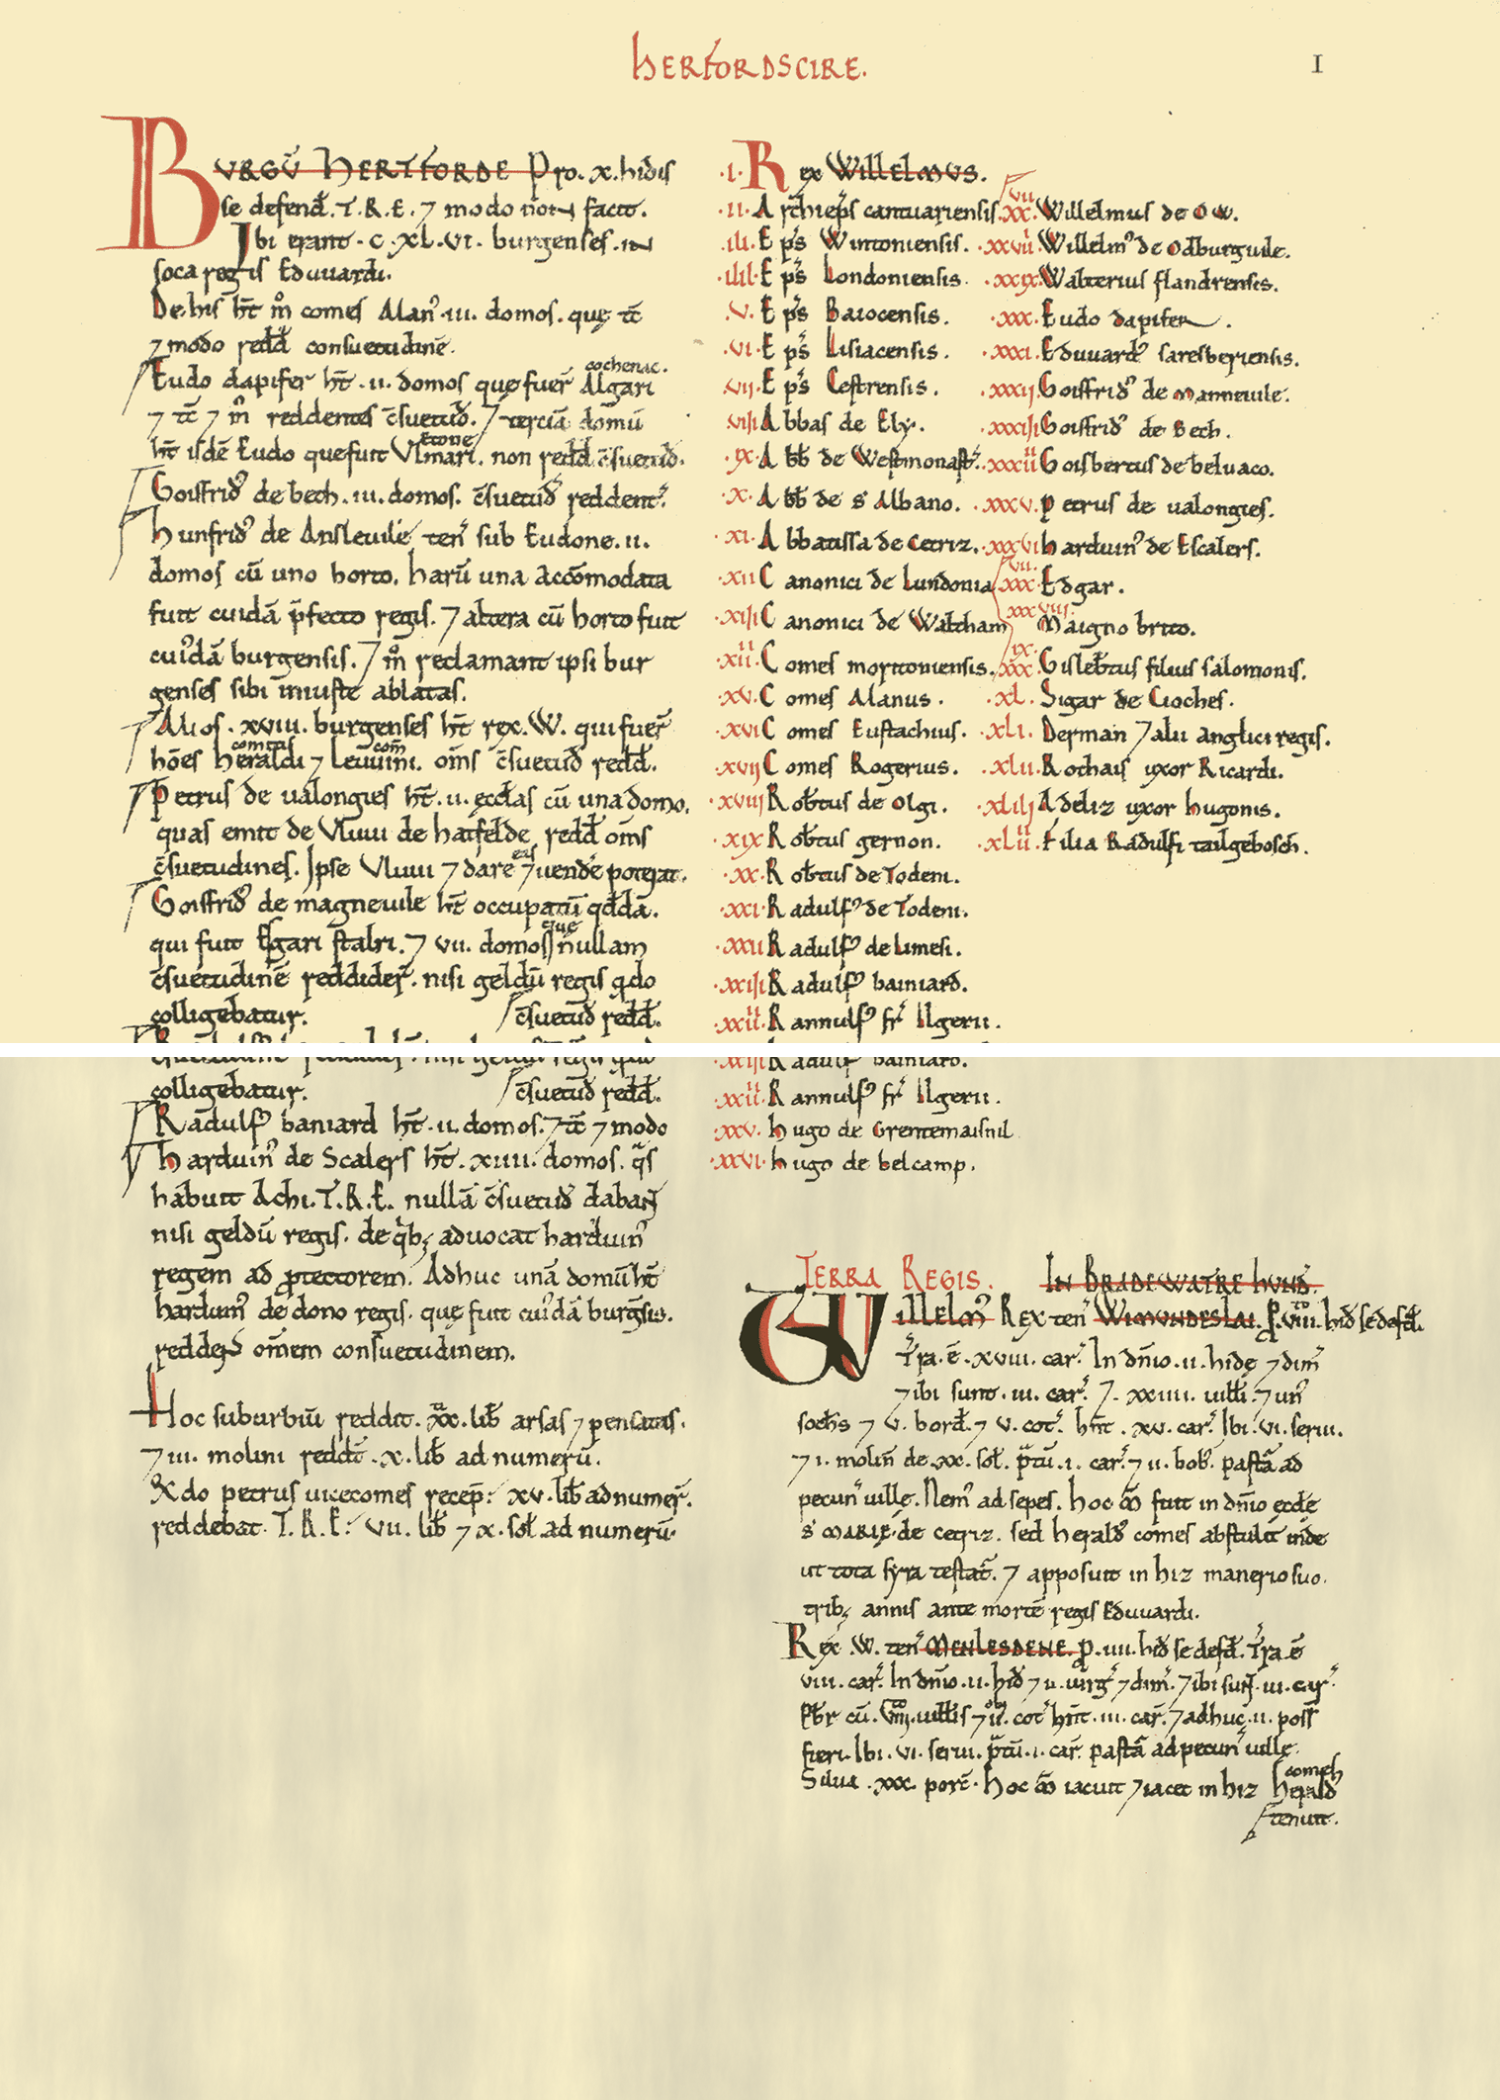 HERTFORDSCIRE.
I
BURGŪ HERTFORDE Pro .x. hidis
se defend̄ .T.R.E. ⁊ modo non facit.
Ibi erant .c.xl.vi. burgenses .in
soca regis Eduuardi.
De his ht̄ m̊ comes Alan⁹ .iii. domos. quę tc̄
⁊ modo redd̄ consuetudinē.
Eudo dapifer ht̄ .ii. domos quę fuer̄ Algari cochenac.
⁊ tc̄ ⁊ m̊ reddentes c̄suetud̄. ⁊ terciā domū
ht̄ isdē Eudo que fuit Vlmari Etone. non redd̄ c̄suetud̄.
Goisfrid⁹ de bech .iii. domos. c̄suetud̄ reddent̄.
Hunfrid⁹ de Ansleuile ten̄ sub Eudone .ii.
domos cū uno horto. harū una accōmodata
fuit cuidā p̄fecto regis. ⁊ altera cū horto fuit
cui⁹dā burgensis. ⁊ m̊ reclamant ipsi bur
genses sibi iniuste ablatas.
Alios .xviii. burgenses ht̄ rex .W. qui fuer̄
hōes heraldi comitis ⁊ Leuuini com̄. om̄s c̄suetud̄ redd̄.
Petrus de ualongies ht̄ .ii. ęccłas cū una domo.
quas emit de Vluui de hatfelde redd̄ om̄s
c̄suetudines. Ipse Vluui ⁊ dare eas ⁊ uende poterat.
Goisfrid⁹ de magneuile ht̄ occupatū qd̄dā.
qui fuit Esgari stalri. ⁊ vii. domos que nullam
c̄suetudinē reddider̄. nisi geldū regis qdo
colligebatur. c̄suetud̄ redd̄.
colligebatur. c̄suetud̄ redd̄.
Radulf⁹ baniard ht̄ .ii. domos. ⁊ tc̄ ⁊ modo
Harduin⁹ de Scalers ht̄ .xiiii. domos. q̄s
habuit Achi .T.R.E. nullā c̄suetud̄ dabant
nisi geldū regis. de qib; aduocat harduin⁹
regem ad ptectorem. Adhuc unā domū ht̄
harduin⁹ de dono regis. quę fuit cui⁹dā burgsis.
reddens om̄em consuetudinem.
Hoc suburbiū reddit .xx. lib̄ arsas ⁊ pensatas.
⁊ iii. molini redd̄t .x. lib̄ ad numerū.
Qdo petrus uicecomes recep̄: xv. lib̄ ad numer̄.
reddebat. T.R.E: vii. lib̄ ⁊ x. sol̄ ad numerū.
.I. Rex Willelmus.
.II. Archiep̄s cantuariensis.
.III. Ep̄s Wintoniensis.
.IIII. Ep̄s Londoniensis.
.V. Ep̄s Baiocensis.
.VI. Ep̄s Lisiacensis.
.VII. Ep̄s Cestrensis.
.VIII. Abbas de Ely.
.IX. Abb̄ de Westmonast̄.
.X. Abb̄ de S Albano.
.XI. Abbatissa de Cetriz.
.XII. Canonici de Lundonia
.XIII. Canonici de Waltham
.XIIII. Comes moritoniensis.
.XV. Comes Alanus.
.XVI. Comes Eustachius.
.XVII. Comes Rogerius.
.XVIII. Rotbtus de Olgi.
.XIX. Rotbtus gernon.
.XX. Rotbtus de Todeni.
.XXI. Radulf⁹ de Todeni.
.XXII. Radulf⁹ de Limesi.
.XXIII. Radulf⁹ bainiard.
.XXIIII. Rannulf⁹ fr̄ Ilgerii.
.XXIII. Radulf⁹ bainiard.
.XXIIII. Rannulf⁹ fr̄ Ilgerii.
.XXV. Hugo de Grentemaisnil
.XXVI. Hugo de belcamp.
XXVII. Willelmus de Ow.
.XXVIII. Willelm⁹ de Odburguile.
.XXIX. Walterius flandrensis.
.XXX. Eudo dapifer.
.XXXI. Eduuard⁹ saresberiensis.
.XXXII. Goisfrid⁹ de Manneuile.
.XXXIII. Goisfrid⁹ de Bech.
.XXXIIII. Goisbertus de beluaco.
.XXXV. Petrus de ualongies.
.XXXVI. Harduin⁹ de Escalers.
XXXVII. Edgar.
XXXVIII. Maigno brito.
XXXIX. Gislebtus filius salomonis.
.XL. Sigar de Cioches.
.XLI. Derman ⁊ alii anglici regis.
.XLII. Rothais uxor Ricardi.
.XLIII. Adeliz uxor hugonis.
.XLIIII. Filia Radulfi tailgebosch.
TERRA REGIS. IN BRADEWATRE HUND̄.
Willelm⁹ Rex ten̄ WIMUNDESLAI. p. viii. hid̄ se defd̄.
Tr̄a .ē. xviii. car̄. In dn̄io .ii. hidę ⁊ dim̄
⁊ ibi sunt .iii. car̄. ⁊ xxiiii. uilli. ⁊ un⁹
soch̄s ⁊ v. bord̄. ⁊ v. cot̄. hn̄t .xv. car̄. Ibi .vi. serui.
⁊ i. molin̄ de .xx. sol̄. p̄tū .i. car̄. ⁊ ii. bob⁹. pastā ad
pecun̄ uillę. Nem⁹ ad sepes. Hoc m̄ fuit in dn̄io ęccłę
S MARIE de cetriz. sed herald⁹ comes abstulit inde
ut tota syra testat̄. ⁊ apposuit in hiz manerio suo.
trib; annis ante mortē regis Eduuardi.
Rex .W. ten̄ MENLESDENE. p. iiii. hid̄ se defd̄. Tr̄a .ē
viii. car̄. In dn̄io .ii. hid̄ ⁊ ii. uirḡ ⁊ dim̄. ⁊ ibi sunt .iii. car̄.
Pbr cū .viii. uilłis ⁊ ii. cot̄ hn̄t .iii. car̄. ⁊ adhuc .ii. poss̄
fieri. Ibi .vi. serui. p̄tū .i. car̄. pastā ad pecun̄ uillę.
Silua .xxx. porc̄. Hoc m̄ iacuit ⁊ iacet in hiz herald⁹ comes
tenuit.